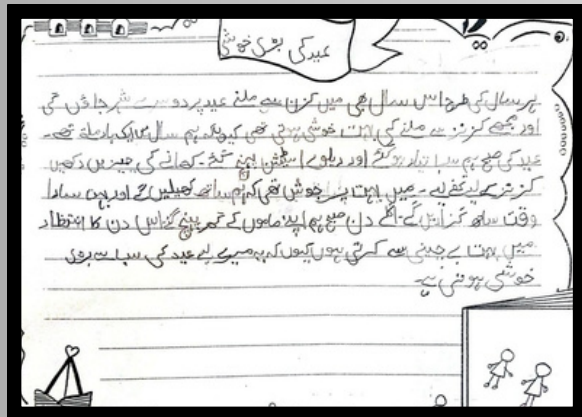 عید کی بڑی خوشی
ہر سال کی طرح اس سال بھی میں کزن سے ملنے عید پر دوسرے شہر جاؤں گی
اور مجھے کزنز سے ملنے کی بہت خوشی ہوتی تھی کیونکہ ہم سال میں ایک بار ملتے تھے۔
عید کی صبح ہم سب تیار ہو گئے اور ریلوے اسٹیشن پہنچ گئے۔ کھانے کی چیزیں رکھیں
کزنز کے لیے تحفے لیے۔ میں بہت پر جوش تھی کہ ہم ساتھ کھیلیں گے اور بہت سارا
وقت ساتھ گزاریں گے۔ اگلے دن صبح ہم اپنے ماموں کے گھر پہنچ گئے اس دن کا انتظار
میں بہت بے چینی سے کرتی ہوں کیوں کہ یہ میرے لیے عید کی سب سے بڑی
خوشی ہوتی ہے۔